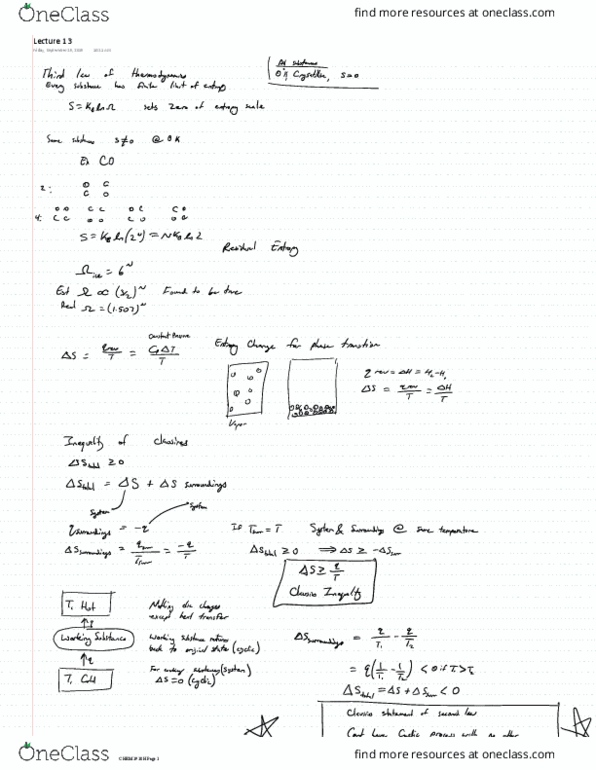 OneClass
find more resources at oneclass.com
Lecture 13
Third law of thermodynamics
All substances
0 K, Crystalline, S=0
Every substance has finite limit of entropy
S = K_B ln Ω sets zero of entropy scale
Some substance S≠0 @ 0K
Ex CO
2:
O C
C O
4:
O O C C O C C O
C C O O C O O C
S = K_B ln(2^N) = N K_B ln 2
Residual Entropy
Ω_ice = 6^N
Est Ω ∝ (3/2)^N Found to be true
Real Ω = (1.507)^N
Constant Pressure
ΔS = q_rev/T = C_pΔT/T
Entropy Change for phase transition
Vapor
q_rev = ΔH = H_2 - H_1
ΔS = q_rev/T = ΔH/T
Inequality of Clausius
ΔS_total ≥ 0
ΔS_total = ΔS + ΔS surroundings
System
System
q_surroundings = -q
If T_surr = T System & Surroundings @ same temperature
ΔS_surroundings = q_surr/T_surr = -q/T
ΔS_total ≥ 0 ⟹ ΔS ≥ -ΔS_surr
ΔS ≥ q/T
Clausius Inequality
T, Hot
Nothing else changes
except heat transfer
↑q
Working Substance
Working substance returns
back to original state (cycle)
↑q
T, Cold
For entropy (system)
ΔS=0 (cyclic)
ΔS_surroundings = q/T_1 - q/T_2
= q(1/T_1 - 1/T_2) < 0 if T_1>T_2
ΔS_total = ΔS + ΔS_surr < 0
Clausius statement of second law
Cant have process with no other
OneClass
find more resources at oneclass.com